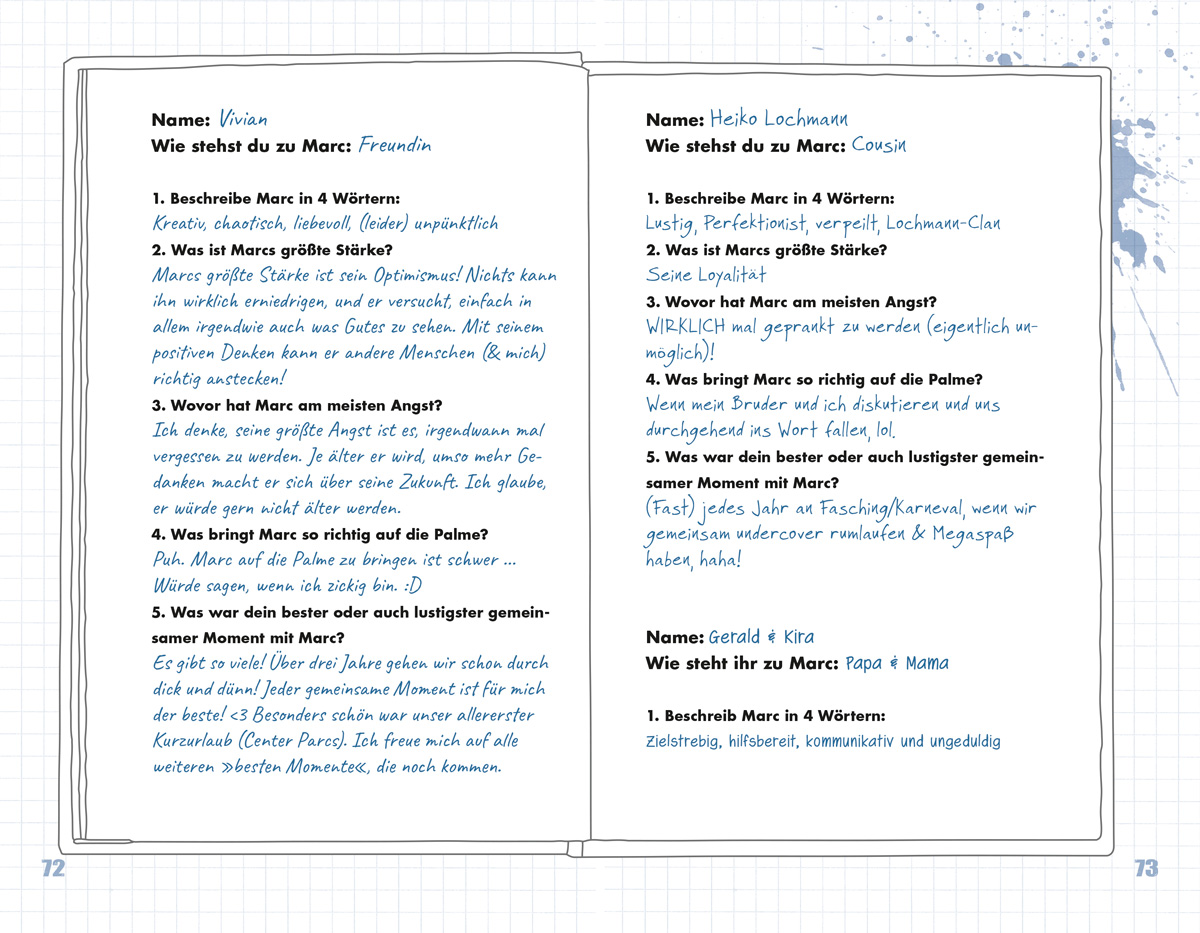 Name: Vivian
Wie stehst du zu Marc: Freundin
1. Beschreibe Marc in 4 Wörtern:
Kreativ, chaotisch, liebevoll, (leider) unpünktlich
2. Was ist Marcs größte Stärke?
Marcs größte Stärke ist sein Optimismus! Nichts kann
ihn wirklich erniedrigen, und er versucht, einfach in
allem irgendwie auch was Gutes zu sehen. Mit seinem
positiven Denken kann er andere Menschen (& mich)
richtig anstecken!
3. Wovor hat Marc am meisten Angst?
Ich denke, seine größte Angst ist es, irgendwann mal
vergessen zu werden. Je älter er wird, umso mehr Ge-
danken macht er sich über seine Zukunft. Ich glaube,
er würde gern nicht älter werden.
4. Was bringt Marc so richtig auf die Palme?
Puh. Marc auf die Palme zu bringen ist schwer ...
Würde sagen, wenn ich zickig bin. :D
5. Was war dein bester oder auch lustigster gemein-
samer Moment mit Marc?
Es gibt so viele! Über drei Jahre gehen wir schon durch
dick und dünn! Jeder gemeinsame Moment ist für mich
der beste! <3 Besonders schön war unser allererster
Kurzurlaub (Center Parcs). Ich freue mich auf alle
weiteren »besten Momente«, die noch kommen.
72
Name: Heiko Lochmann
Wie stehst du zu Marc: Cousin
1. Beschreibe Marc in 4 Wörtern:
Lustig, Perfektionist, verpeilt, Lochmann-Clan
2. Was ist Marcs größte Stärke?
Seine Loyalität
3. Wovor hat Marc am meisten Angst?
WIRKLICH mal geprankt zu werden (eigentlich un-
möglich)!
4. Was bringt Marc so richtig auf die Palme?
Wenn mein Bruder und ich diskutieren und uns
durchgehend ins Wort fallen, lol.
5. Was war dein bester oder auch lustigster gemein-
samer Moment mit Marc?
(Fast) jedes Jahr an Fasching/Karneval, wenn wir
gemeinsam undercover rumlaufen & Megaspaß
haben, haha!
Name: Gerald & Kira
Wie steht ihr zu Marc: Papa & Mama
1. Beschreib Marc in 4 Wörtern:
Zielstrebig, hilfsbereit, kommunikativ und ungeduldig
73